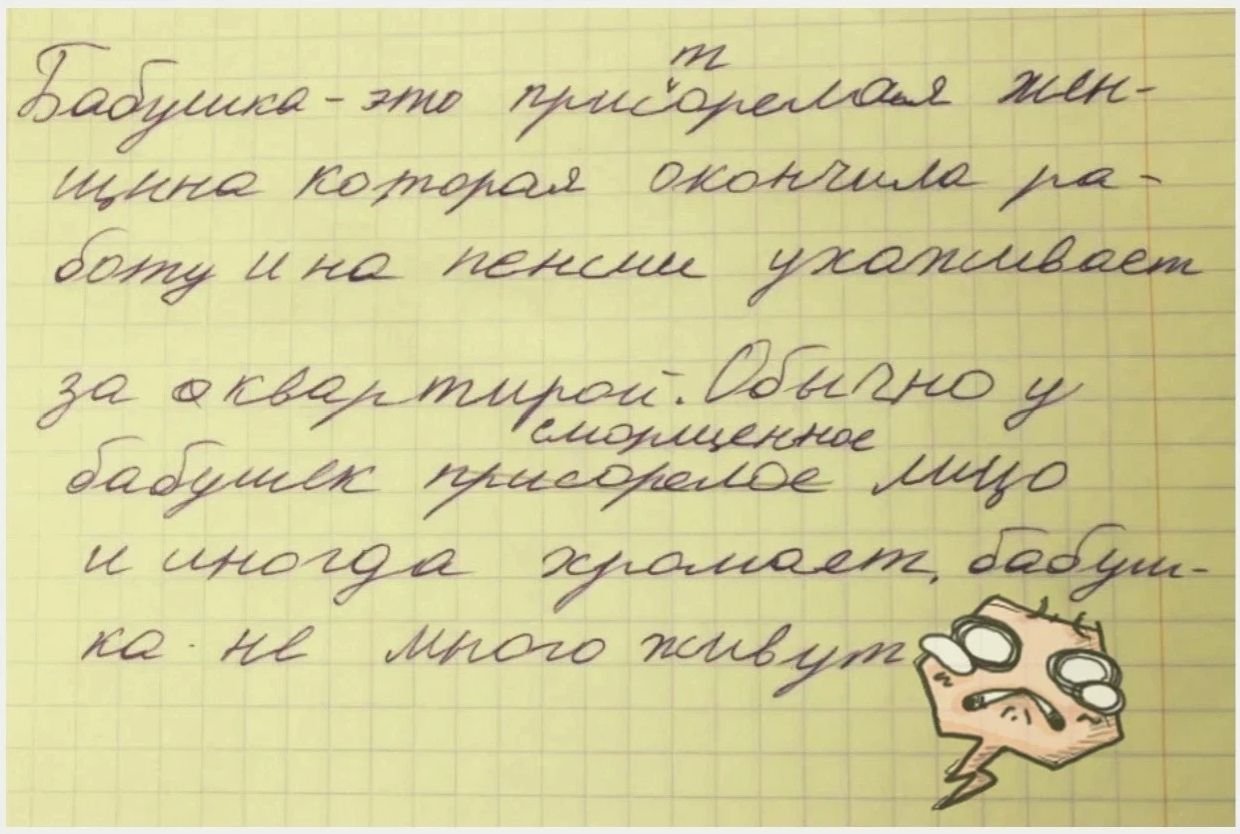 т
Бабушка - это присорелая жен-
щина которая окончила ра-
боту и на пенсии ухаживает
за квартирой. Обычно у
сморщенное
бабушек присорелое лицо
и иногда хромает, бабуш-
ка не много живут